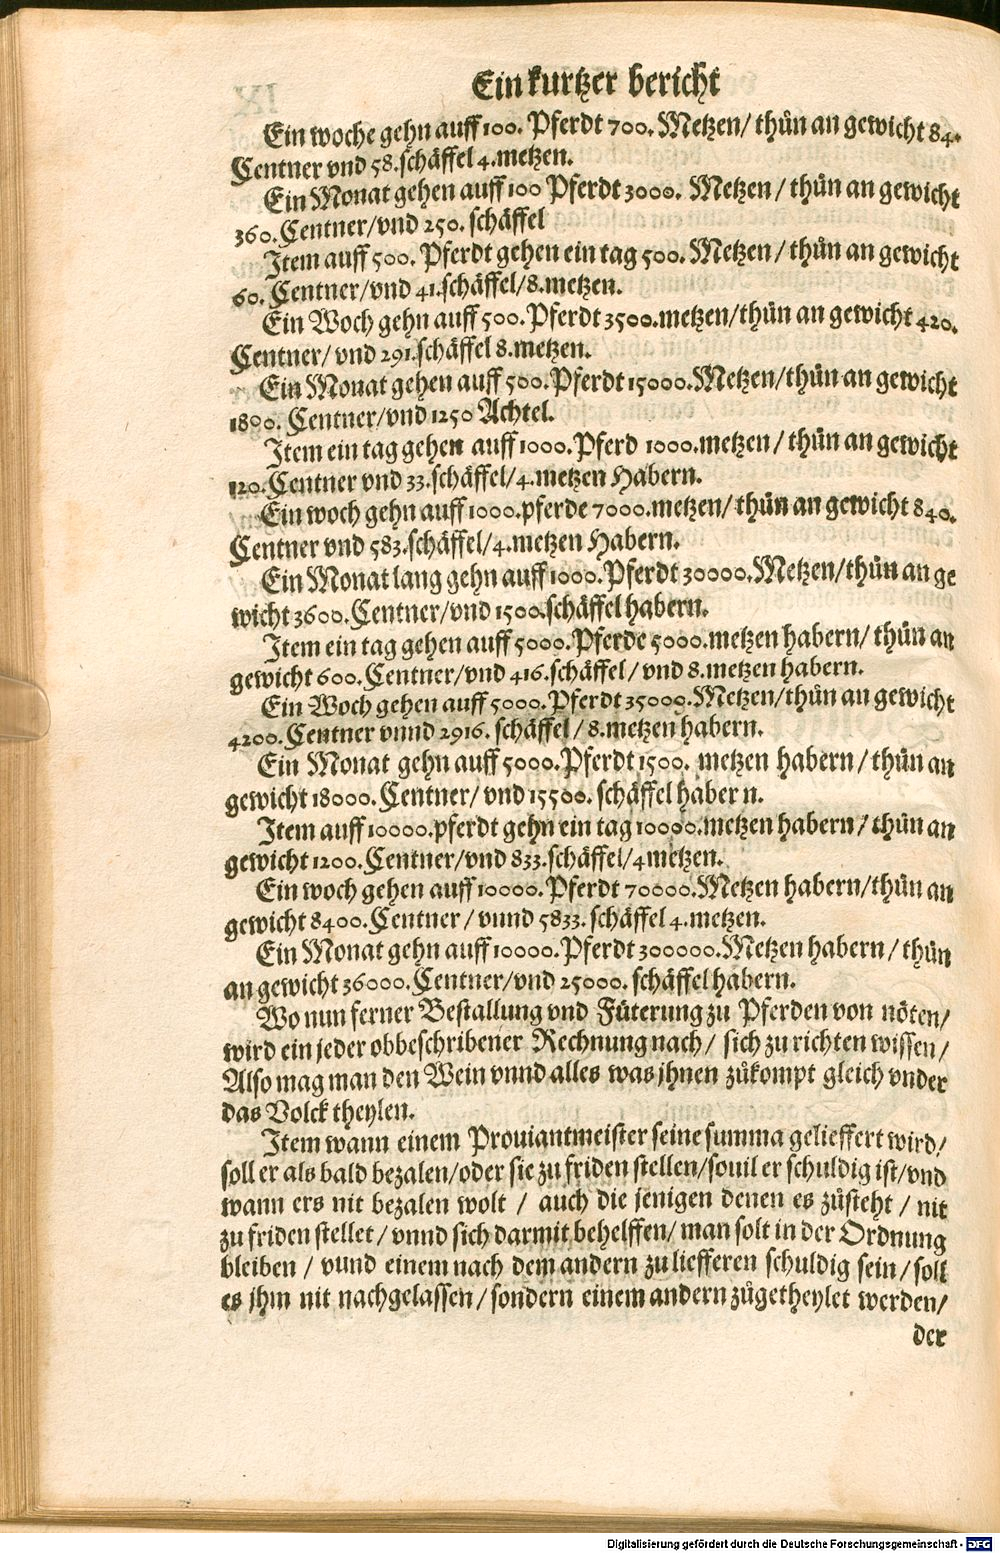 Ein kurtzer bericht
Ein woche gehn auff 100. Pferdt 700. Metzen / thůn an gewicht 84.
Centner vnd 58. schäffel 4. metzen.
Ein Monat gehen auff 100 Pferdt 3000. Metzen / thůn an gewicht
360. Centner / vnd 250. schäffel
Item auff 500. Pferdt gehen ein tag 500. Metzen / thůn an gewicht
60. Centner / vnd 41. schäffel / 8. metzen.
Ein Woch gehn auff 500. Pferdt 3500. metzen / thůn an gewicht 420.
Centner / vnd 291. schäffel 8. metzen.
Ein Monat gehen auff 500. Pferdt 15000. Metzen / thůn an gewicht
1800. Centner / vnd 1250 Achtel.
Item ein tag gehen auff 1000. Pferd 1000. metzen / thůn an gewicht
120. Centner vnd 33. schäffel / 4. metzen Habern.
Ein woch gehn auff 1000. pferde 7000. metzen / thůn an gewicht 840.
Centner vnd 583. schäffel / 4. metzen Habern.
Ein Monat lang gehn auff 1000. Pferdt 30000. Metzen / thůn an ge
wicht 3600. Centner / vnd 1500. schäffel habern.
Item ein tag gehen auff 5000. Pferde 5000. metzen habern / thůn an
gewicht 600. Centner / vnd 416. schäffel / vnd 8. metzen habern.
Ein Woch gehen auff 5000. Pferdt 35000. Metzen / thůn an gewicht
4200. Centner vnnd 2916. schäffel / 8. metzen habern.
Ein Monat gehn auff 5000. Pferdt 1500. metzen habern / thůn an
gewicht 18000. Centner / vnd 15500. schäffel haber n.
Item auff 10000. pferdt gehn ein tag 10000. metzen habern / thůn an
gewicht 1200. Centner / vnd 833. schäffel / 4 metzen.
Ein woch gehen auff 10000. Pferdt 70000. Metzen habern / thůn an
gewicht 8400. Centner / vnnd 5833. schäffel 4. metzen.
Ein Monat gehn auff 10000. Pferdt 300000. Metzen habern / thůn
an gewicht 36000. Centner / vnd 25000. schäffel habern.
Wo nun ferner Bestallung vnd Füterung zu Pferden von nöten /
wird ein jeder obbeschribener Rechnung nach / sich zu richten wissen /
Also mag man den Wein vnnd alles was jhnen zůkompt gleich vnder
das Volck theylen.
Item wann einem Prouiantmeister seine summa gelieffert wird /
soll er als bald bezalen / oder sie zu friden stellen / souil er schuldig ist / vnd
wann ers nit bezalen wolt / auch die jenigen denen es zůsteht / nit
zu friden stellet / vnnd sich darmit behelffen / man solt in der Ordnung
bleiben / vnnd einem nach dem andern zu liefferen schuldig sein / soll
es jhm nit nachgelassen / sondern einem andern zůgetheylet werden /
der
Digitalisierung gefördert durch die Deutsche Forschungsgemeinschaft - DFG